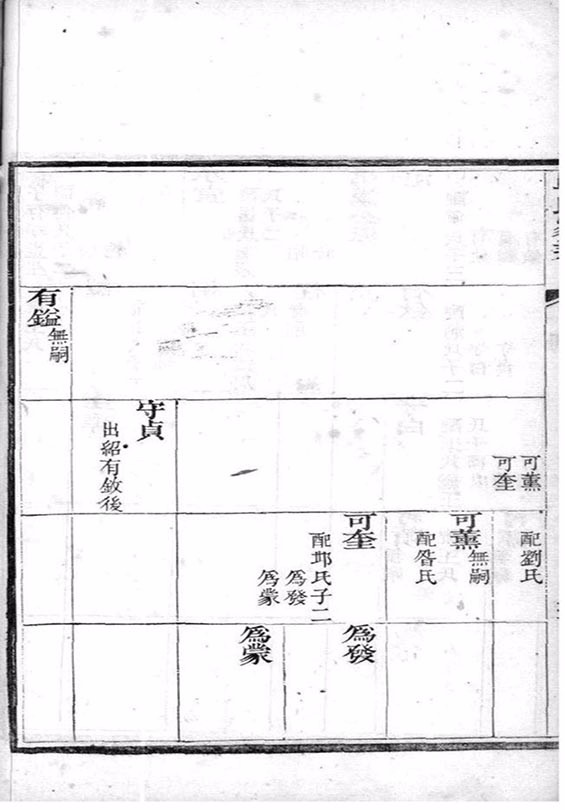 有鎰
無嗣
可薰
可奎
守貞
出紹有 後
配劉氏
可薰
無嗣
配昝氏
可奎
配 氏子二
爲發
爲蒙
爲發
爲蒙